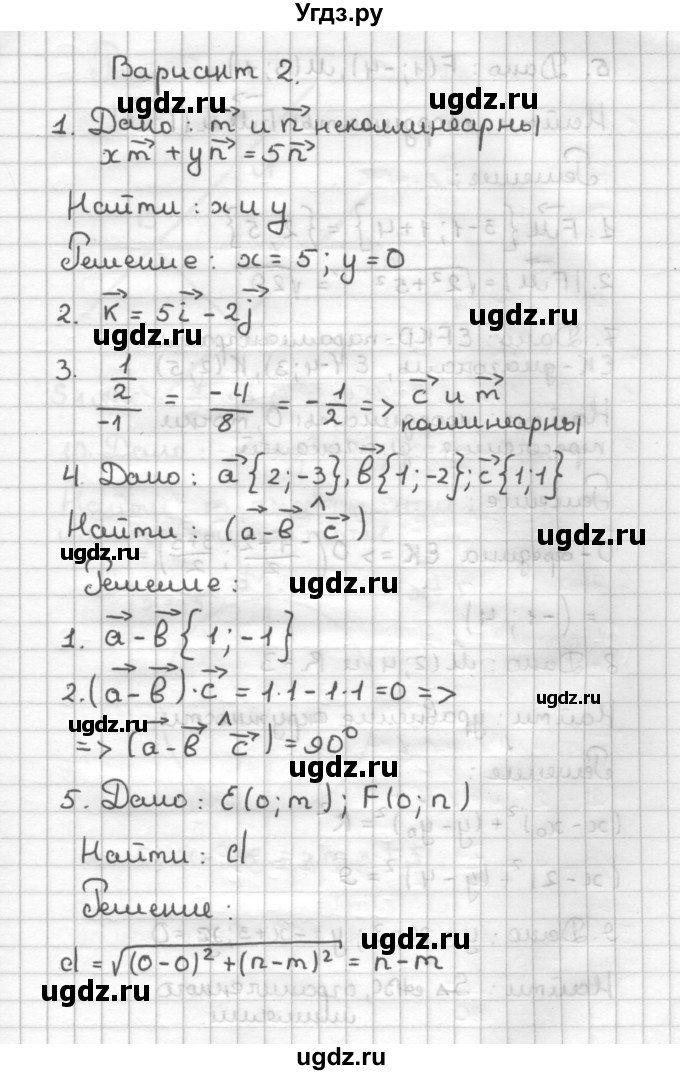 Угдз.ру
Вариант 2.
ugdz.ru ugdz.ru
1. Дано: m⃗ и n⃗ неколлинеарны
xm⃗ + yn⃗ = 5n⃗
Найти: x и y
Решение: x = 5; y = 0
2. k⃗ = 5i⃗ - 2j⃗
ugdz.ru ugdz.ru
3. (1/2)/(-1) = -4/8 = -1/2 => c⃗ и m⃗
коллинеарны
4. Дано: a⃗{2;-3}, b⃗{1;-2}; c⃗{1;1}
Найти: (a⃗-b⃗ ^ c⃗)
ugdz.ru ugdz.ru
Решение: ugdz.ru
1. a⃗-b⃗{1;-1}
2. (a⃗-b⃗)·c⃗ = 1·1-1·1=0 =>
ugdz.ru ugdz.ru
=> (a⃗-b⃗ ^ c⃗) = 90°
ugdz.ru
5. Дано: E(0;m); F(0;n)
Найти: d
Решение:
ugdz.ru
d = √((0-0)²+(n-m)²) = n-m
ugdz.ru
ugdz.ru